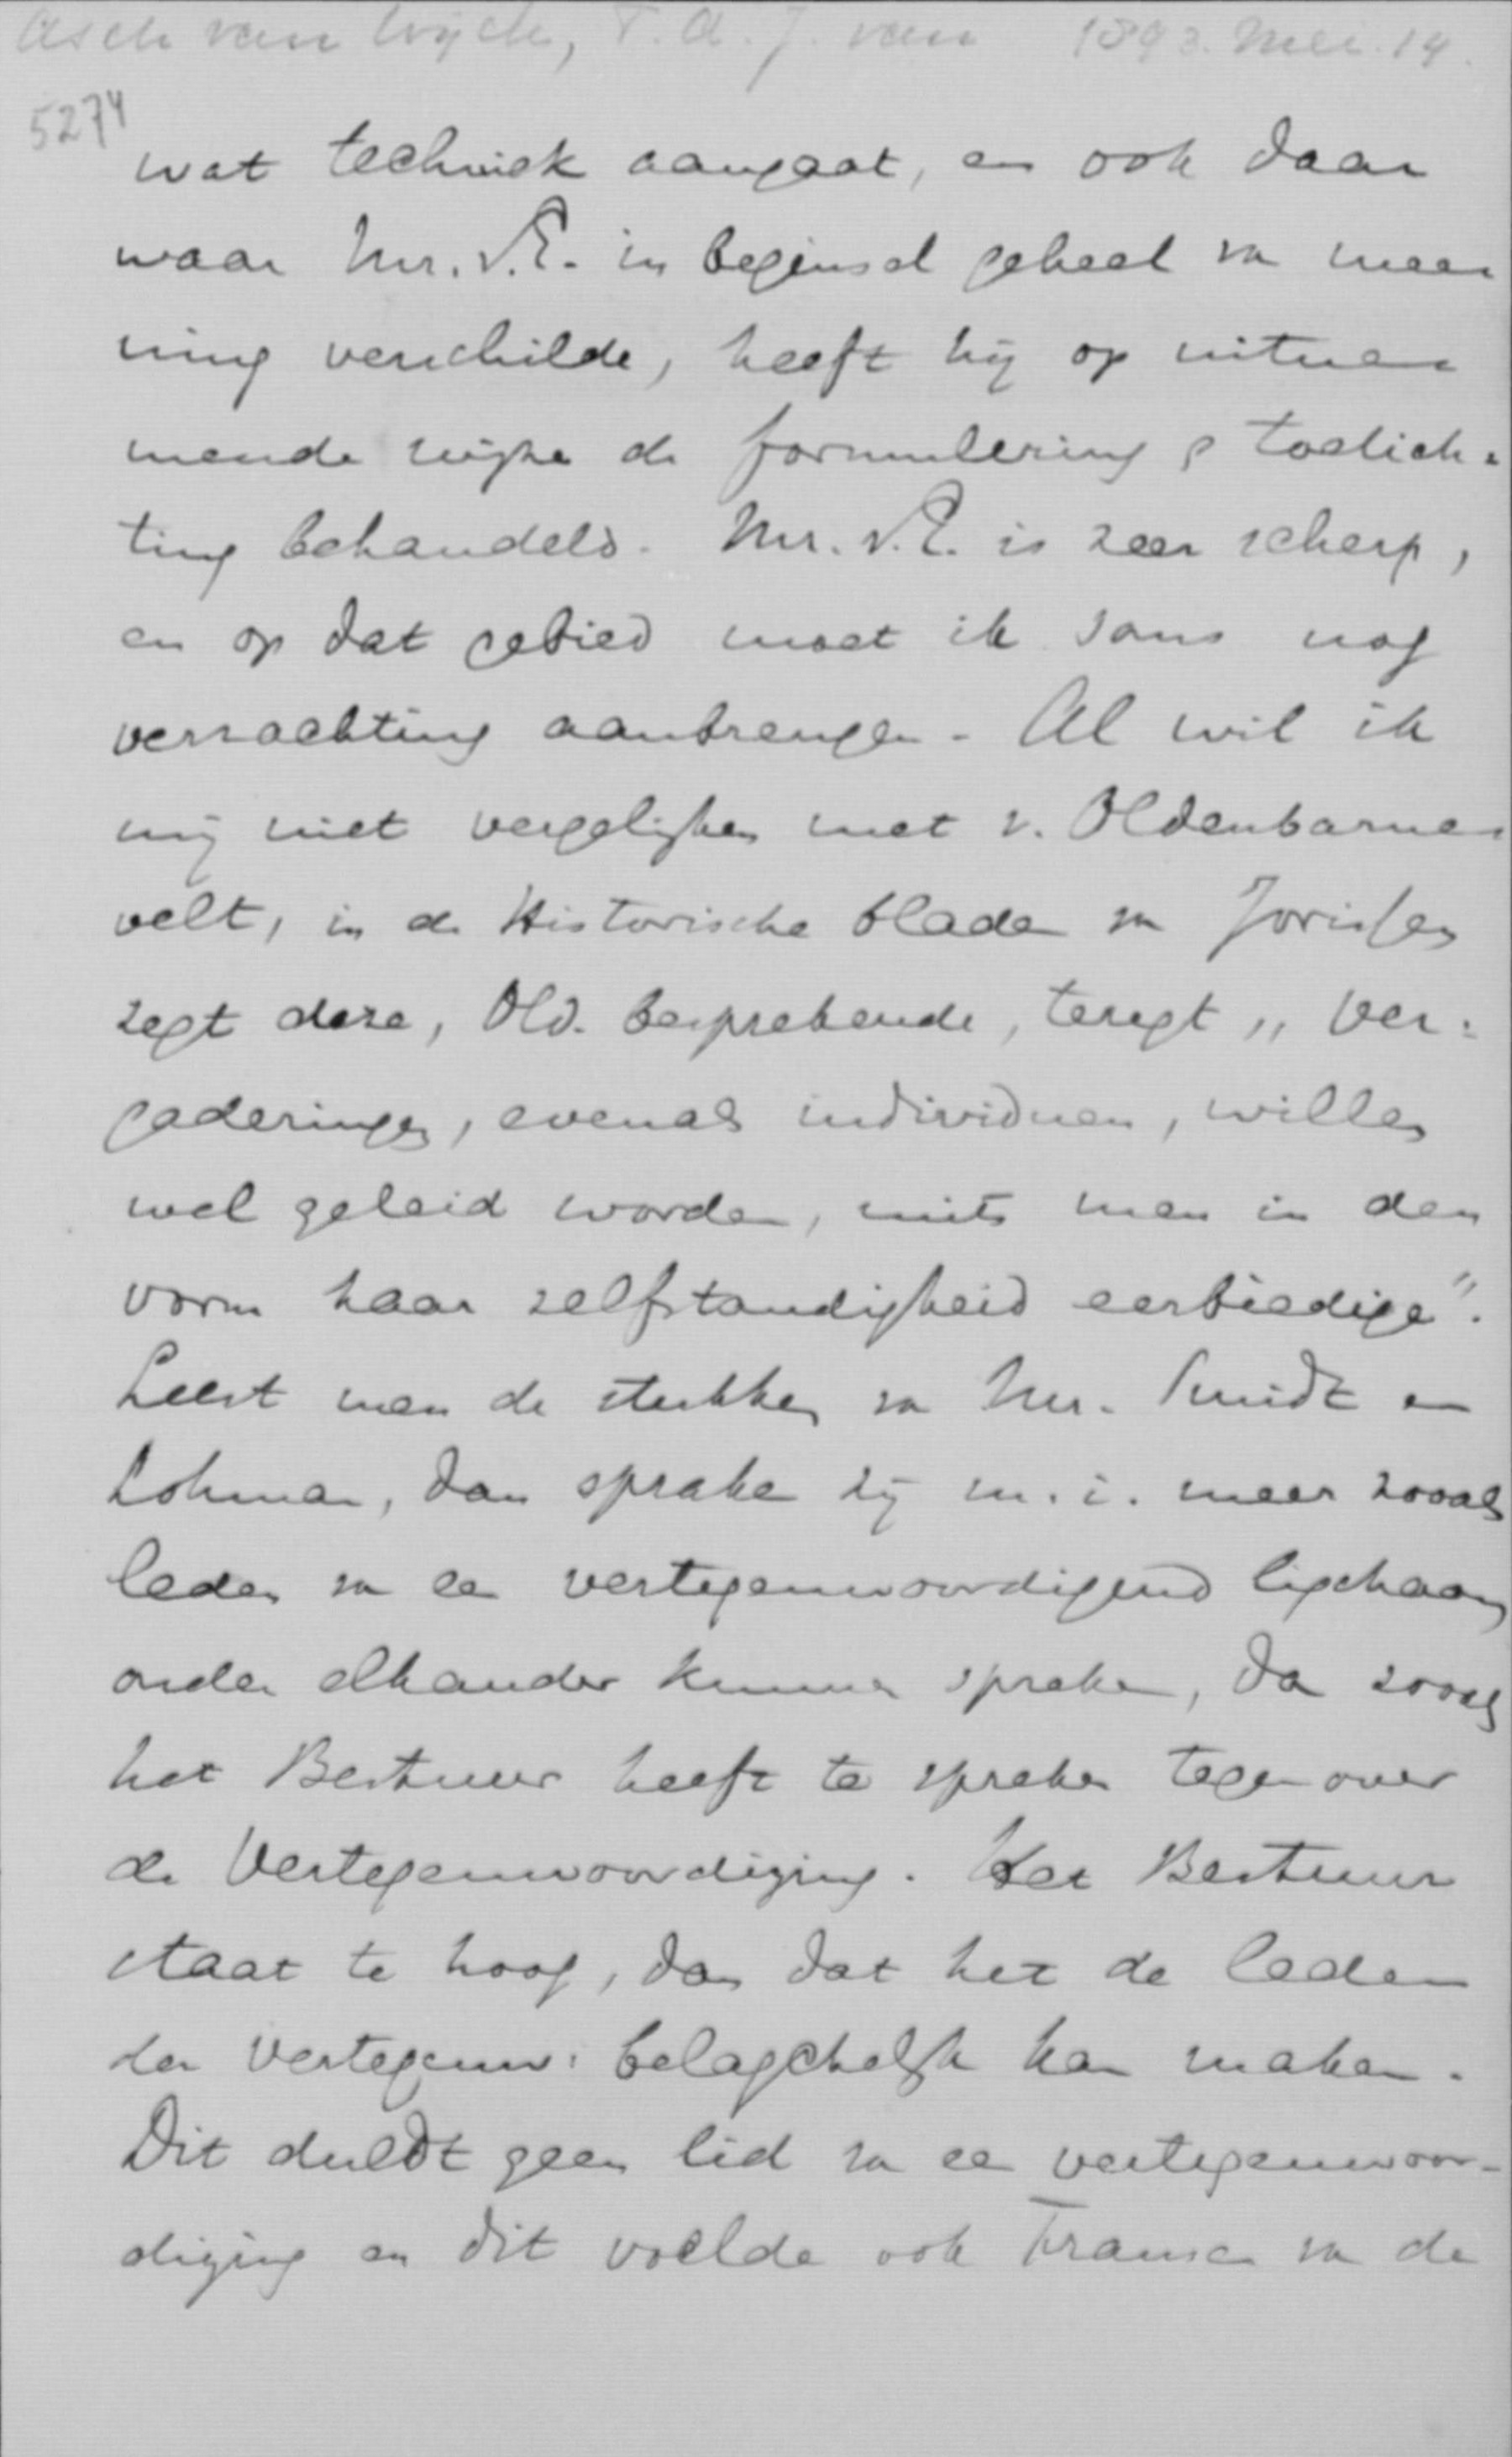 Asch van Wijck, T. A. J. van 1893. Mei. 14.
5274
wat techniek aangaat, en ook daar
waar Mr. v. E. in beginsel geheel va mee=
ning verschilde, heeft hij op uitne=
mende wijze de formulering & toelich=
ting behandeld. Mr. v. E. is zeer scherp,
en op dat gebied moet ik soms nog
verzachting aanbrengen. Al wil ik
mij niet vergelijken met v. Oldenbarne=
velt, in de Historische blade va Jorissen
zegt deze, Old. besprekende, teregt „Ver=
gaderingen, evenals individuen, willen
wel geleid worden, mits men in den
vorm haar zelfstandigheid eerbiedige".
Leest men de stukken va Mr. Smidt en
Lohman, dan spraken zij m. i. meer zooals
leden va ee vertegenwoordigend ligchaam
onder elkander kunnen spreken, dan zooals
het Bestuur heeft te spreken tegenover
de Vertegenwoordiging. Het Bestuur
staat te hoog, dan dat het de leden
der Vertegenw: belagchelijk kan maken.
Dit duldt geen lid va ee vertegenwoor-
diging en dit voelde ook Fransen va de